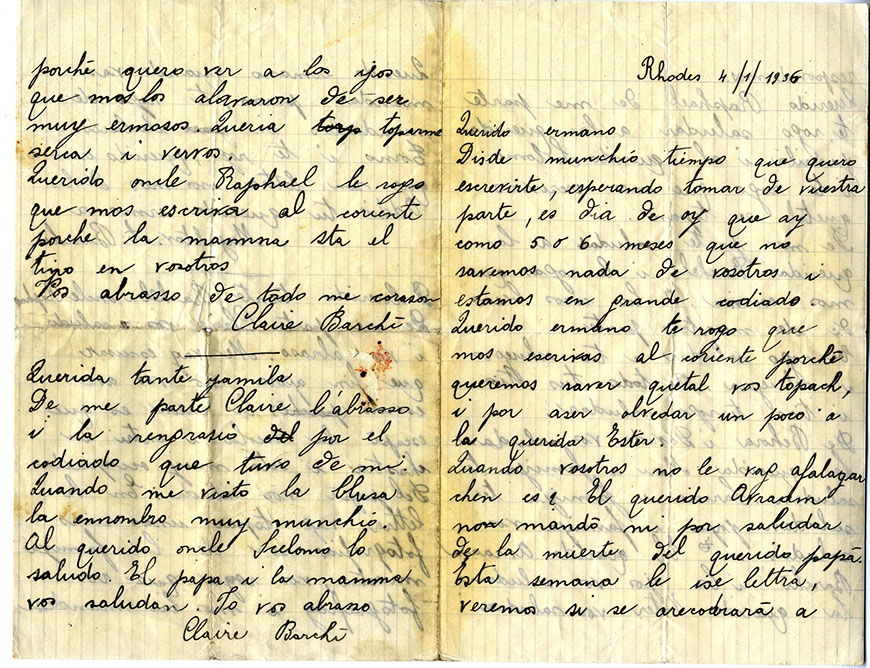 Rhodes 4/1/1936
Querido ermano
Disde munchio tiempo que quero
escrevirte, esperando tomar de vuestra
parte, es dia de oy que ay
como 5 o 6 meses que no
savemos nada de vosotros i
estamos en grande codiado.
Querido ermano te rogo que
mos escrivas al coriente porchè
queremos saver quetal vos topach,
i por aser olvedar un poco a
la querida Ester.
Quando vosotros no le vax afalagar
chen es? El querido Avraam
no mandò ni por saludar
de la muerte del querido papà.
Esta semana le ise lettra,
veremos si se arecodrarà a
porchè quero ver a los ijos
que mos los alavaron de ser
muy ermosos. Queria toparme
serca i vervos.
Querido oncle Raphael le rogo
que mos escriva al coriente
porche la mamma sta el
tino en vosotros
Vos abrasso de todo me corason
Claire Barchì
Querida tante yamila
De me parte Claire l'abrasso
i la rengrasio por el
codiado que tuvo de mi.
Quando me visto la blusa
la ennombro muy munchio.
Al querido oncle Scelomo lo
saludo. El papa i la mamma
vos saludan. Io vos abrasso
Claire Barchì